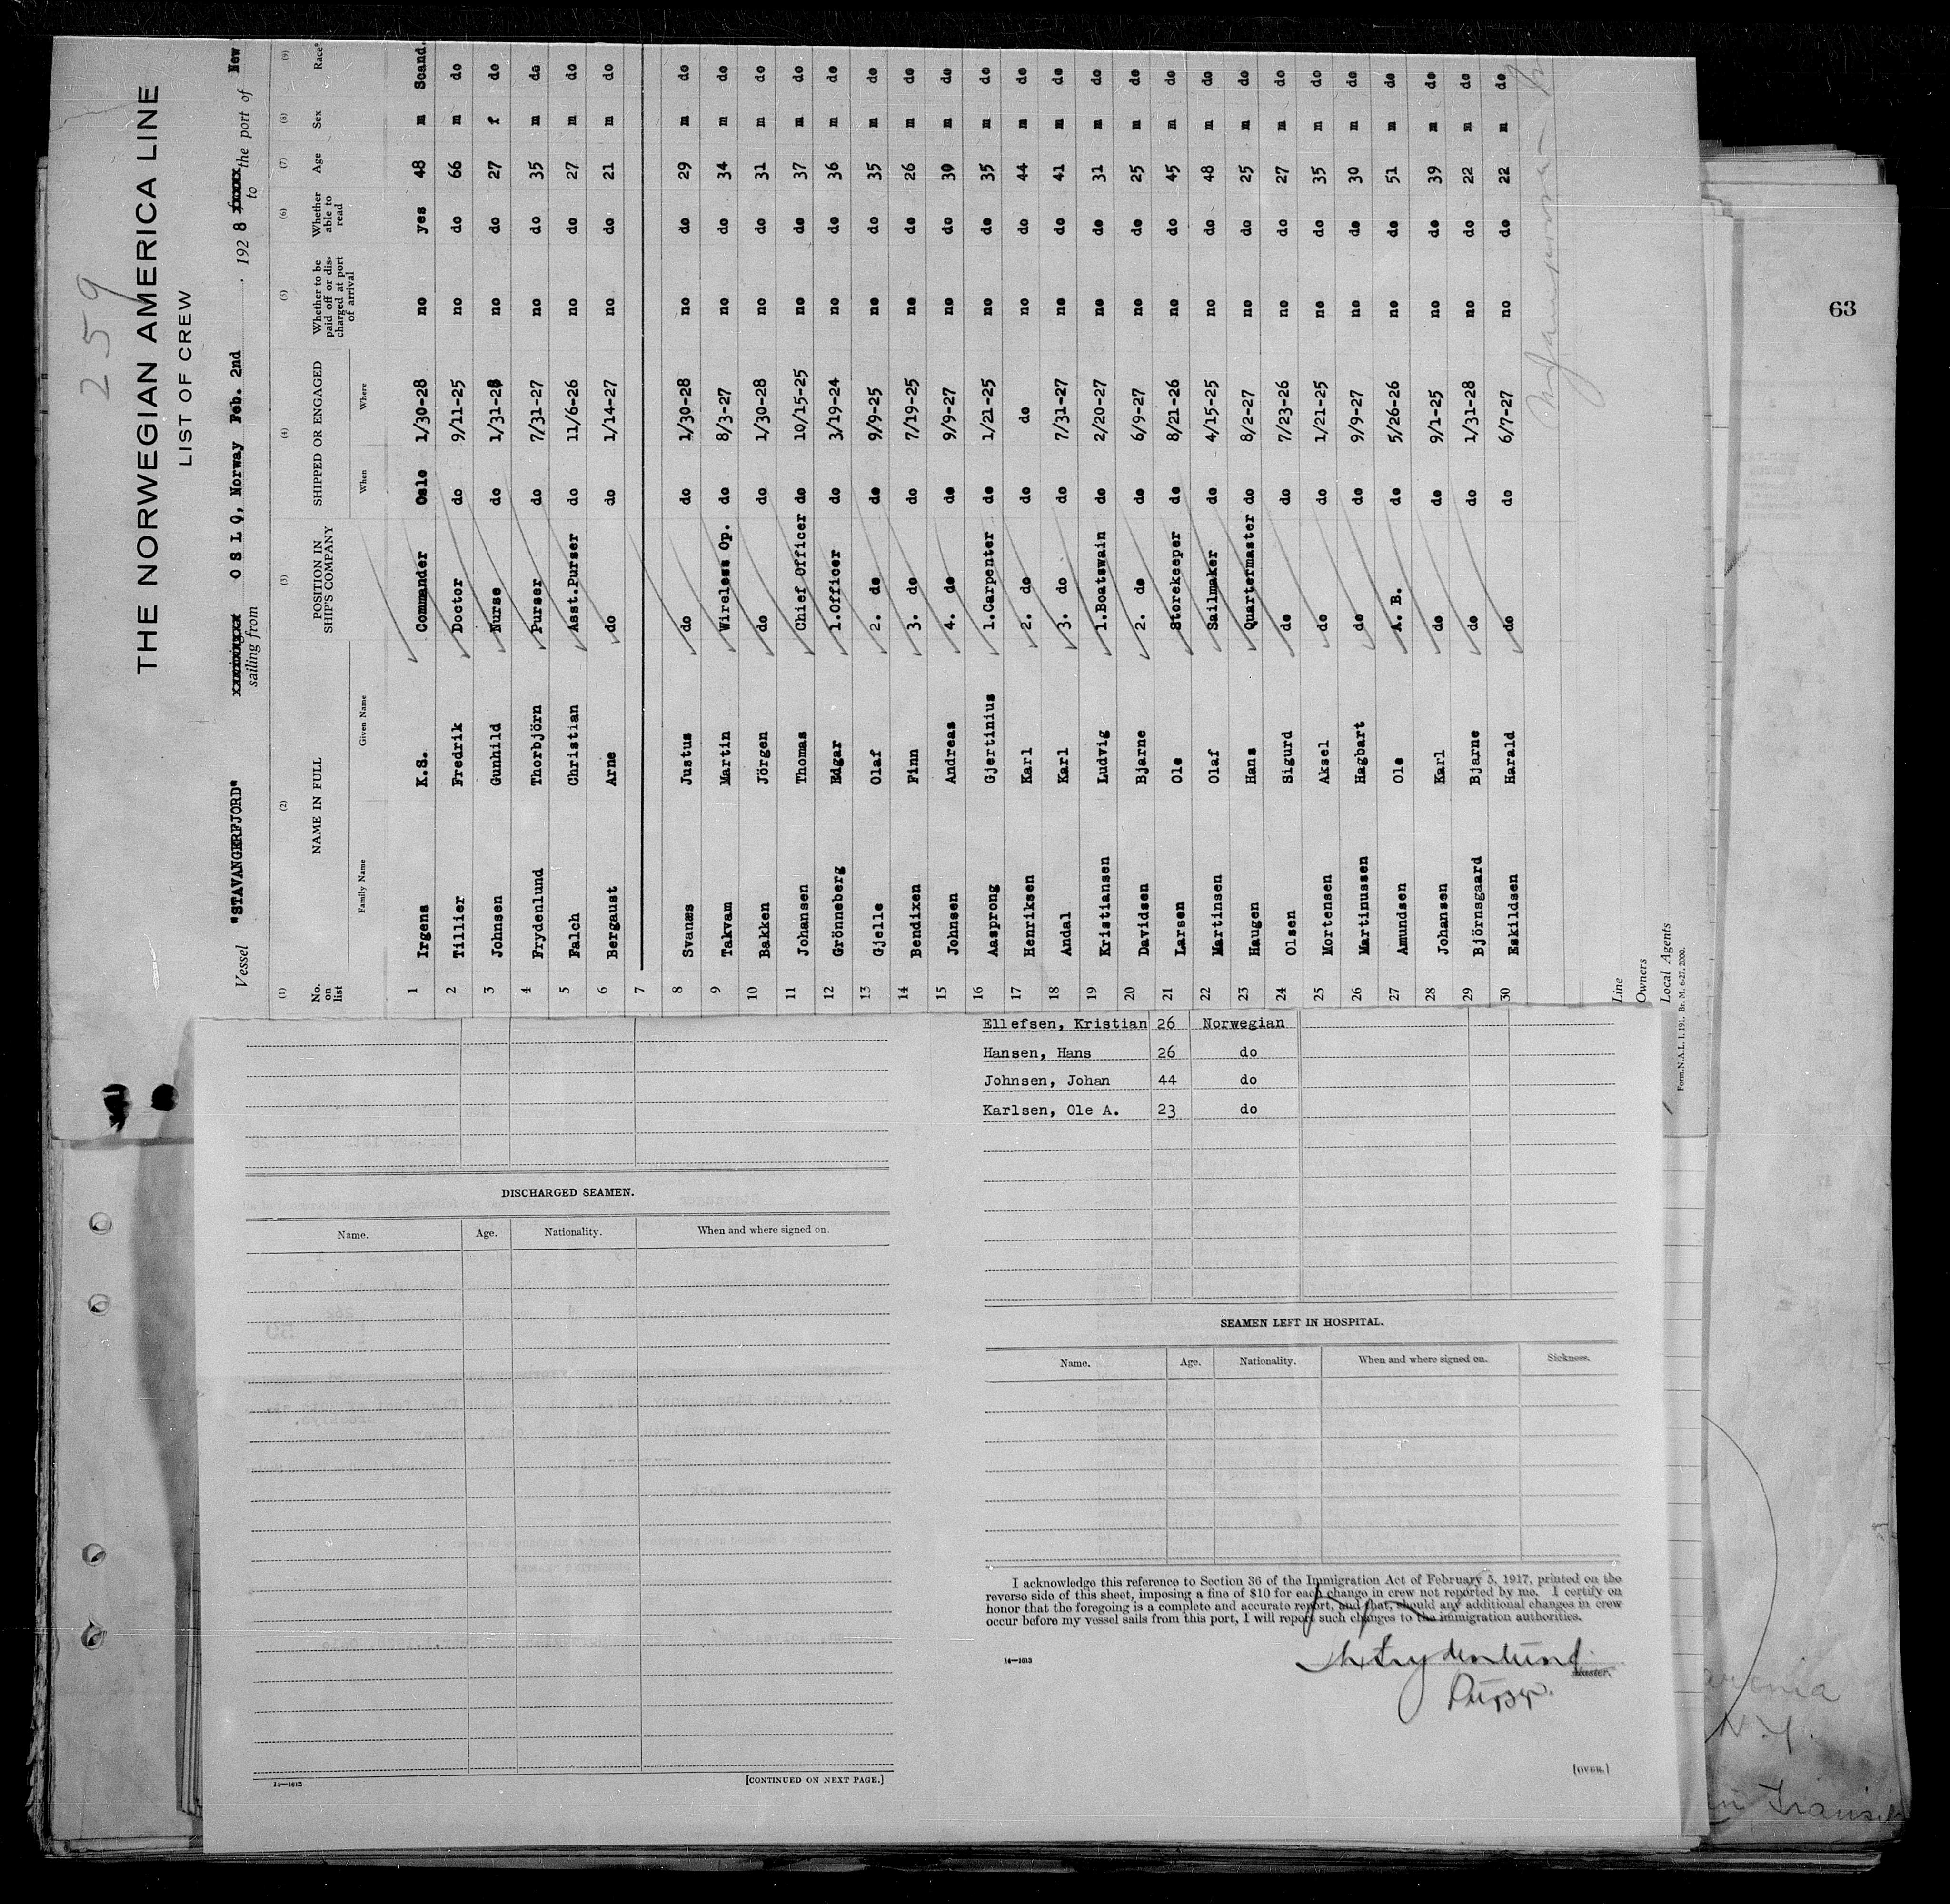 259
THE NORWEGIAN AMERICA LINE
LIST OF CREW
Vessel "STAVANGERFJORD" sailing from O S L O, Norway Feb. 2nd 1928 to the port of New
(1) (2) (3) (4) (5) (6) (7) (8) (9)
No. on list NAME IN FULL POSITION IN SHIP'S COMPANY SHIPPED OR ENGAGED Whether to be paid off or discharged at port of arrival Whether able to read Age Sex Race*
Family Name Given Name When Where
1 Irgens K.S. Commander Oslo 1/30-28 no yes 48 m Scand.
2 Tillier Fredrik Doctor do 9/11-25 no do 66 m do
3 Johnsen Gunhild Nurse do 1/31-28 no do 27 f do
4 Frydenlund Thorbjörn Purser do 7/31-27 no do 35 m do
5 Falch Christian Asst.Purser do 11/6-26 no do 27 m do
6 Bergaust Arne do do 1/14-27 no do 21 m do
7
8 Svanæs Justus do do 1/30-28 no do 29 m do
9 Takvam Martin Wireless Op. do 8/3-27 no do 34 m do
10 Bakken Jörgen do do 1/30-28 no do 31 m do
11 Johansen Thomas Chief Officer do 10/15-25 no do 37 m do
12 Grönneberg Edgar 1.Officer do 3/19-24 no do 36 m do
13 Gjelle Olaf 2. do do 9/9-25 no do 35 m do
14 Bendixen Finn 3. do do 7/19-25 no do 26 m do
15 Johnsen Andreas 4. do do 9/9-27 no do 30 m do
16 Aasprong Gjertinius 1.Carpenter do 1/21-25 no do 35 m do
17 Henriksen Karl 2. do do do no do 44 m do
18 Andal Karl 3. do do 7/31-27 no do 41 m do
19 Kristiansen Ludvig 1.Boatswain do 2/20-27 no do 31 m do
20 Davidsen Bjarne 2. do do 6/9-27 no do 25 m do
21 Larsen Ole Storekeeper do 8/21-26 no do 45 m do
22 Martinsen Olaf Sailmaker do 4/15-25 no do 48 m do
23 Haugen Hans Quartermaster do 8/2-27 no do 25 m do
24 Olsen Sigurd do do 7/23-26 no do 27 m do
25 Mortensen Aksel do do 1/21-25 no do 35 m do
26 Martinussen Hagbart do do 9/9-27 no do 30 m do
27 Amundsen Ole A. B. do 5/26-26 no do 51 m do
28 Johansen Karl do do 9/1-25 no do 39 m do
29 Björnsgaard Bjarne do do 1/31-28 no do 22 m do
30 Eskildsen Harald do do 6/7-27 no do 22 m do
Line
Owners
Local Agents
Form.N.A.L. I. 191. Br. M. 6-27. 2000.
63
DISCHARGED SEAMEN.
Name. Age. Nationality. When and where signed on.
14—1613
[CONTINUED ON NEXT PAGE.]
Ellefsen, Kristian 26 Norwegian
Hansen, Hans 26 do
Johnsen, Johan 44 do
Karlsen, Ole A. 23 do
SEAMEN LEFT IN HOSPITAL.
Name. Age. Nationality. When and where signed on. Sickness.
I acknowledge this reference to Section 36 of the Immigration Act of February 5, 1917, printed on the
reverse side of this sheet, imposing a fine of $10 for each change in crew not reported by me. I certify on
honor that the foregoing is a complete and accurate report, and that, should any additional changes in crew
occur before my vessel sails from this port, I will report such changes to the immigration authorities.
14—1613
Th Frydenlund
Master.
Purser.
[OVER.]
N.Y.
in Transit